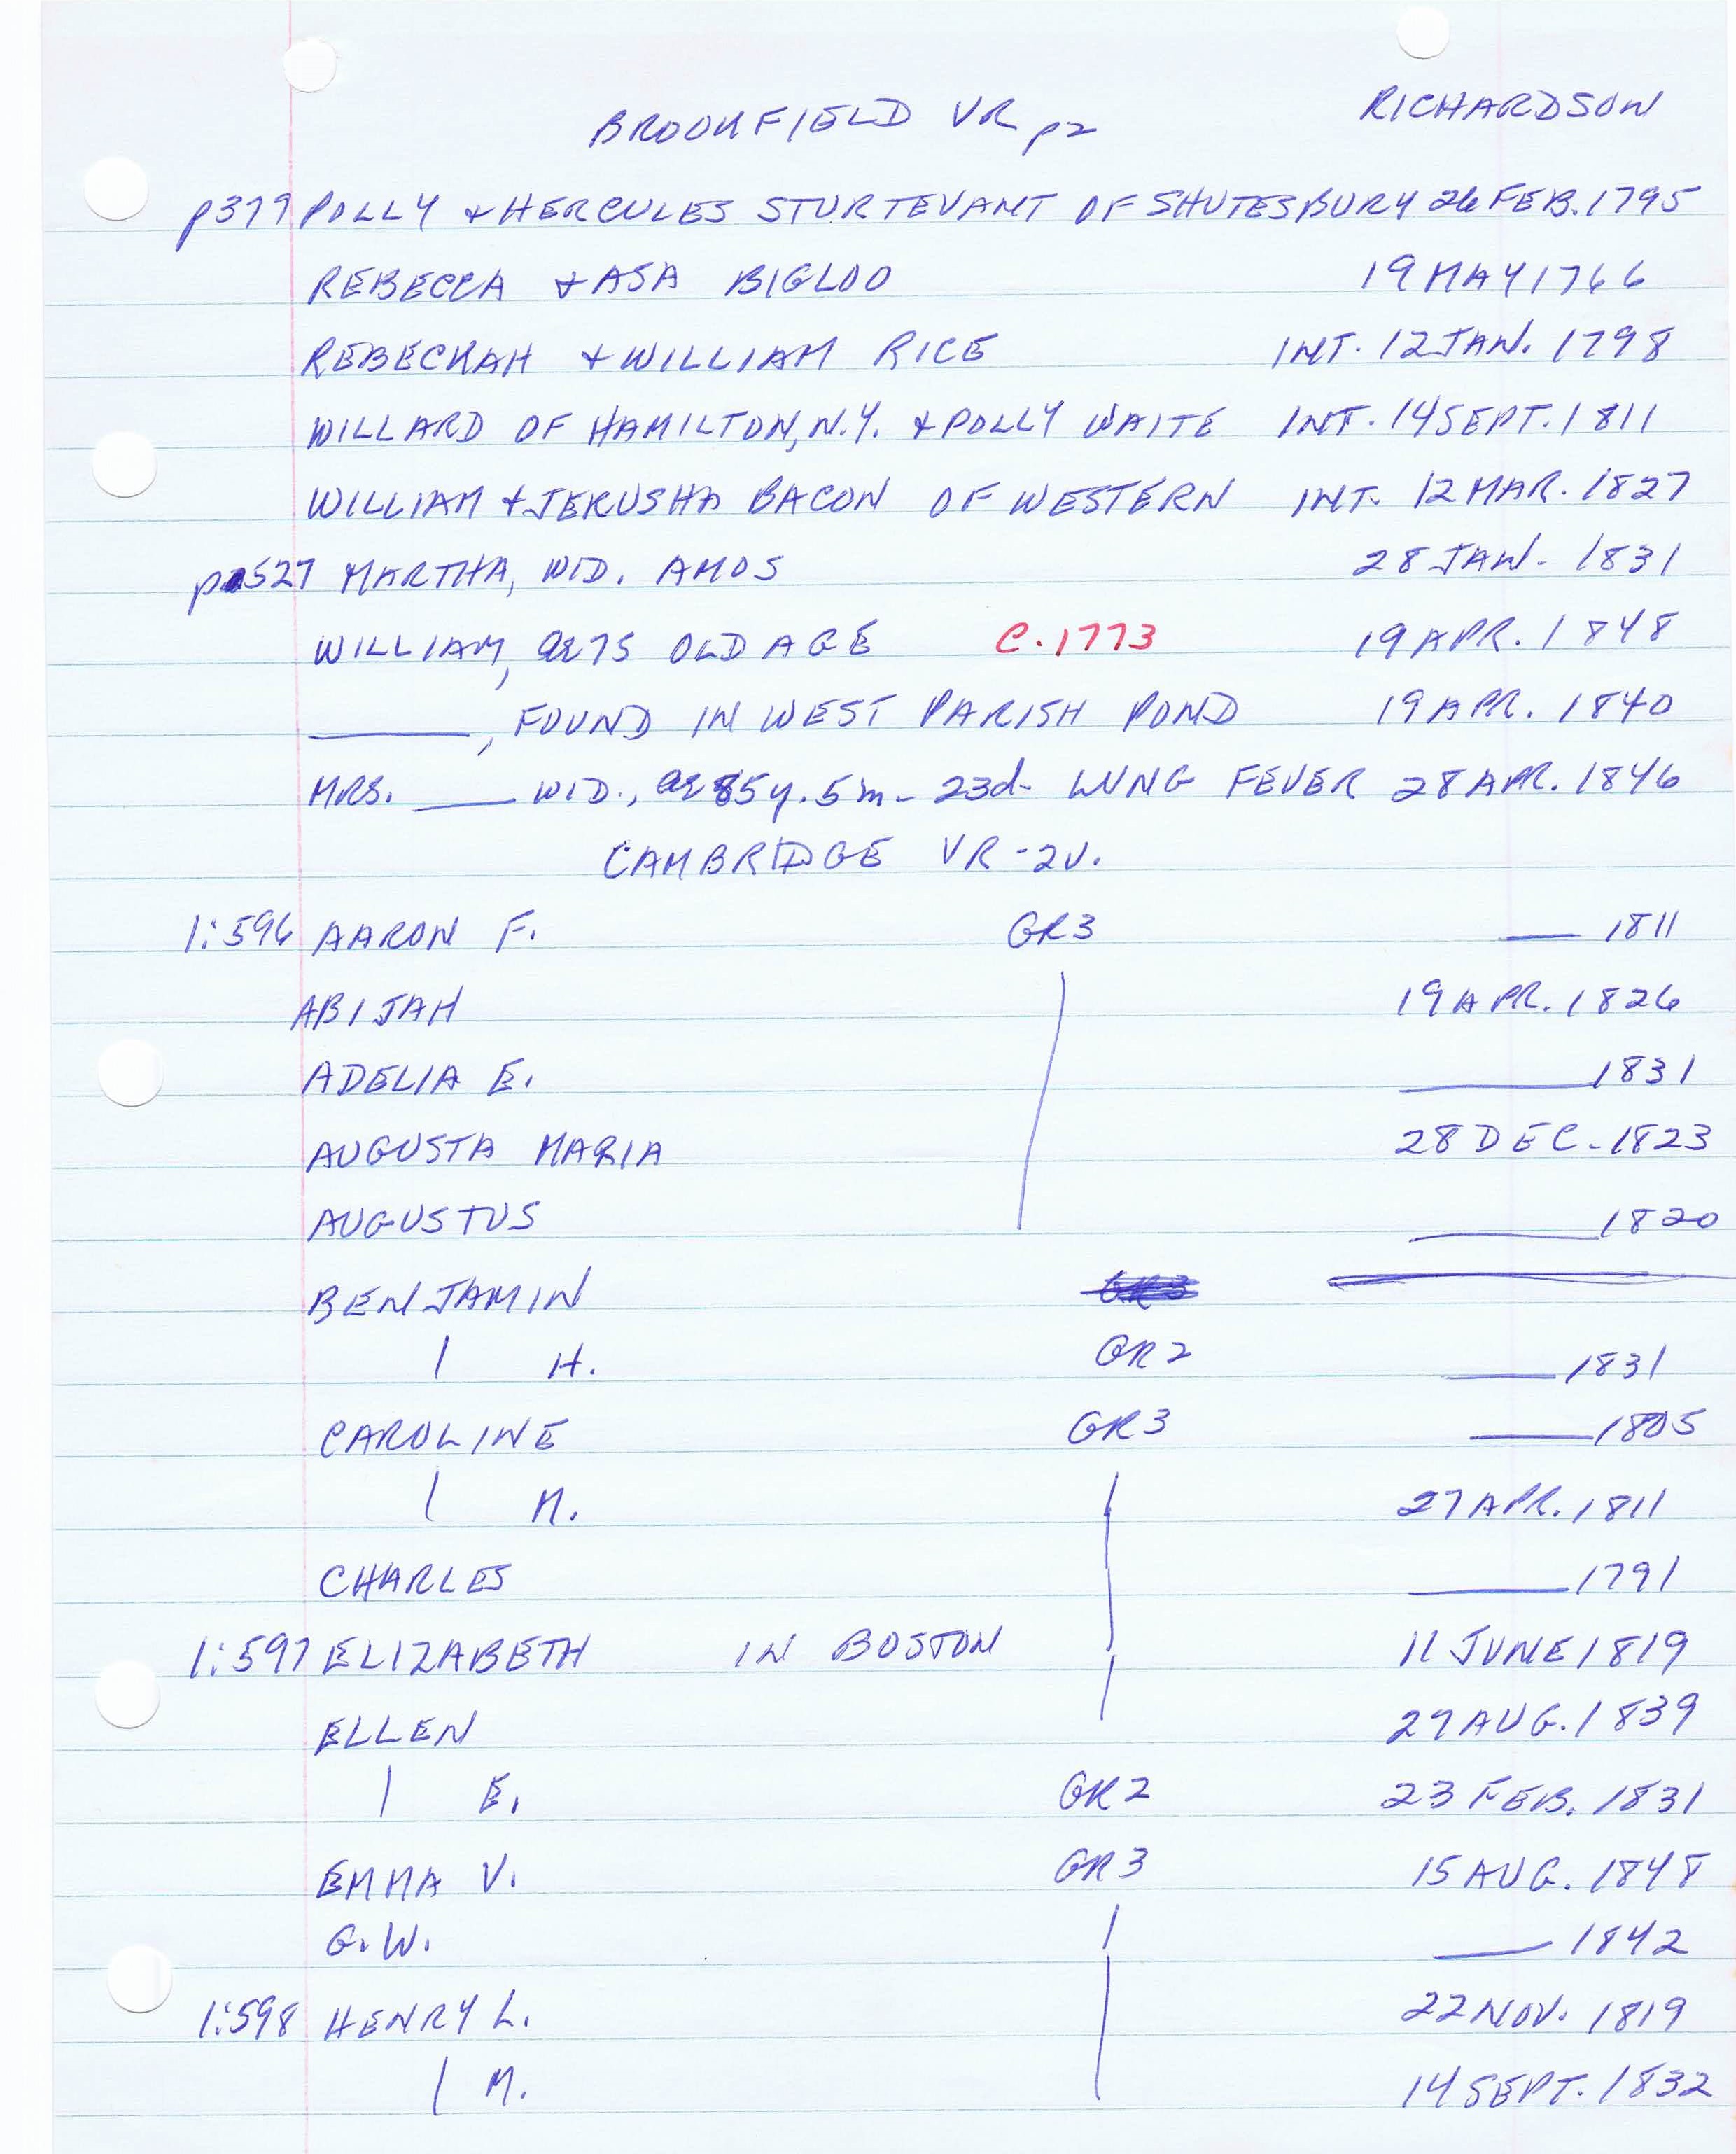 BROOKFIELD VR p2 RICHARDSON
p379 POLLY & HERCULES STURTEVANT OF SHUTESBURY 26 FEB. 1795
REBECCA & ASA BIGLOO 19 MAY 1766
REBECKAH & WILLIAM RICE INT. 12 JAN. 1798
WILLARD OF HAMILTON, N.Y. & POLLY WAITE INT. 14 SEPT. 1811
WILLIAM & JERUSHA BACON OF WESTERN INT. 12 MAR. 1827
p 527 MARTHA, WID. AMOS 28 JAN. 1831
WILLIAM, ae 75 OLD AGE C. 1773 19 APR. 1848
____, FOUND IN WEST PARISH POND 19 APR. 1840
MRS. ___ WID., ae 85 y. 5 m- 23d- LUNG FEVER 28 APR. 1846
CAMBRIDGE VR - 2V.
1:596 AARON F. GR3 — 1811
ABIJAH 19 APR. 1826
ADELIA E. ____ 1831
AUGUSTA MARIA 28 DEC - 1823
AUGUSTUS ____ 1820
BENJAMIN
| H. GR2 ___ 1831
CAROLINE GR3 ___ 1805
| M. | 27 APR. 1811
CHARLES ____ 1791
1:597 ELIZABETH IN BOSTON 11 JUNE 1819
ELLEN 27 AUG. 1839
| E. GR2 23 FEB. 1831
EMMA V. GR3 15 AUG. 1848
G. W. | ___ 1842
1:598 HENRY L. 22 NOV. 1819
| M. 14 SEPT. 1832